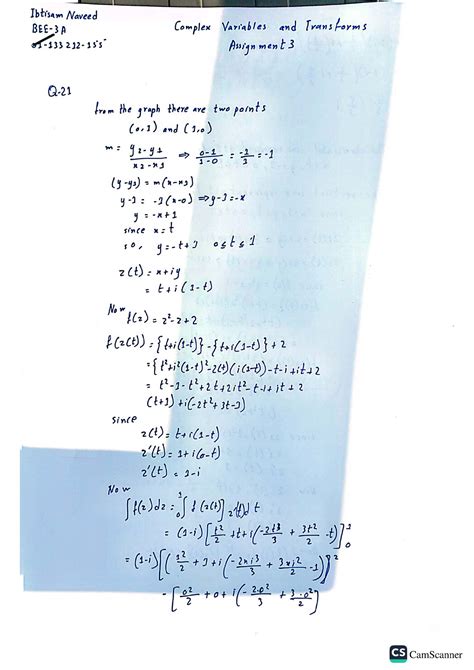 Ibtisam Naveed
Complex Variables and Transforms
BEE-3A
Assignment 3
Q-21
from the graph there are two points
(0,1) and (1,0)
m = y₂-y₁/x₂-x₁ ⇒ 0-1/1-0 = -1/1 = -1
(y-y₁) = m(x-x₁)
y-1 = -1(x-0) ⇒ y-1=-x
y = -x+1
since x=t
so, y=-t+1 0≤t≤1
z(t) = x+iy
= t+i(1-t)
Now
f(z) = z²-z+2
f(z(t)) = {t+i(1-t)}-{t+i(1-t)}+2
= t²-1-t²+2t+2it²-t-1+it+2
(t+1)+i(-2t²+3t-1)
since
z(t) = t+i(1-t)
z'(t) = 1+i(0-1)
z'(t) = 1-i
Now
∫f(z)dz = ₀∫¹ f(z(t)) z'(t)dt
= (1-i)[t²/2 +t+i(-2t³/3 + 3t²/2 -t)]¹₀
- [0²/2 +0+i(-2·0²/3 + 3·0²/2)]
CS CamScanner